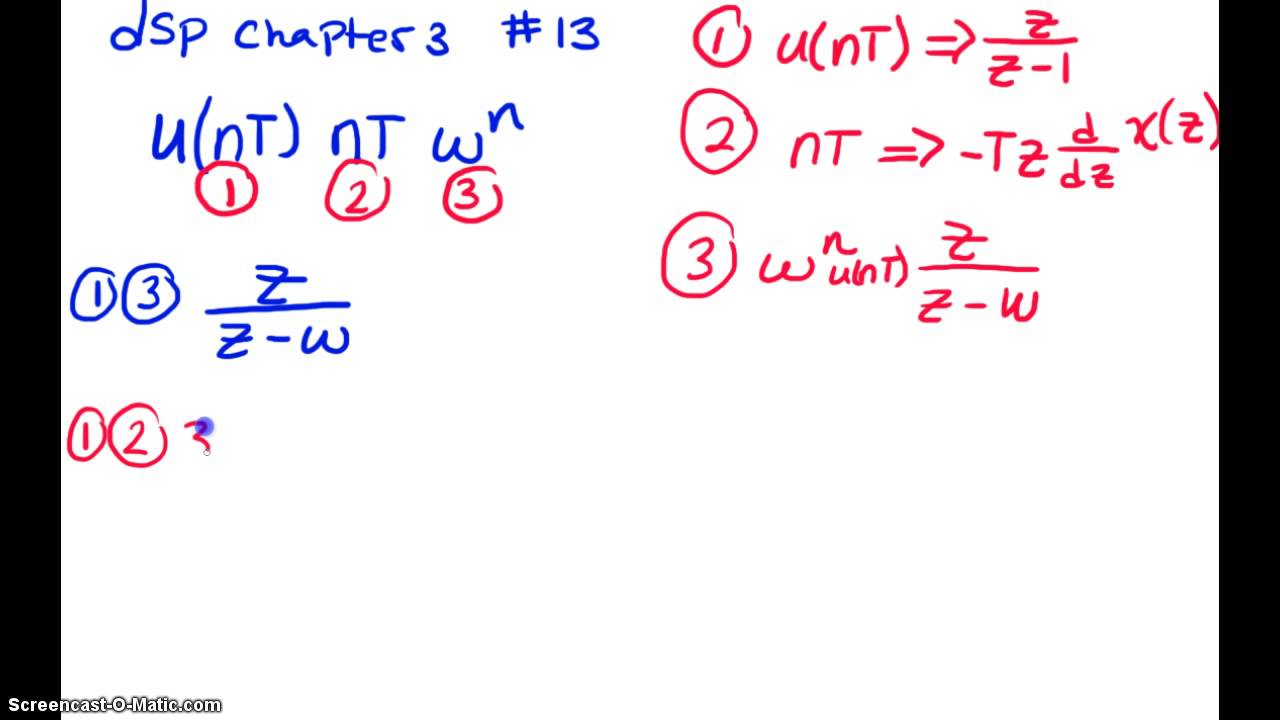 dSp chapter 3 #13
u(nT) nT w^n
① ② ③
①③ z/(z-w)
①② 3
① u(nT) ⇒ z/(z-1)
② nT ⇒ -Tz d/dz X(z)
③ w^n u(nT) z/(z-w)
Screencast-O-Matic.com